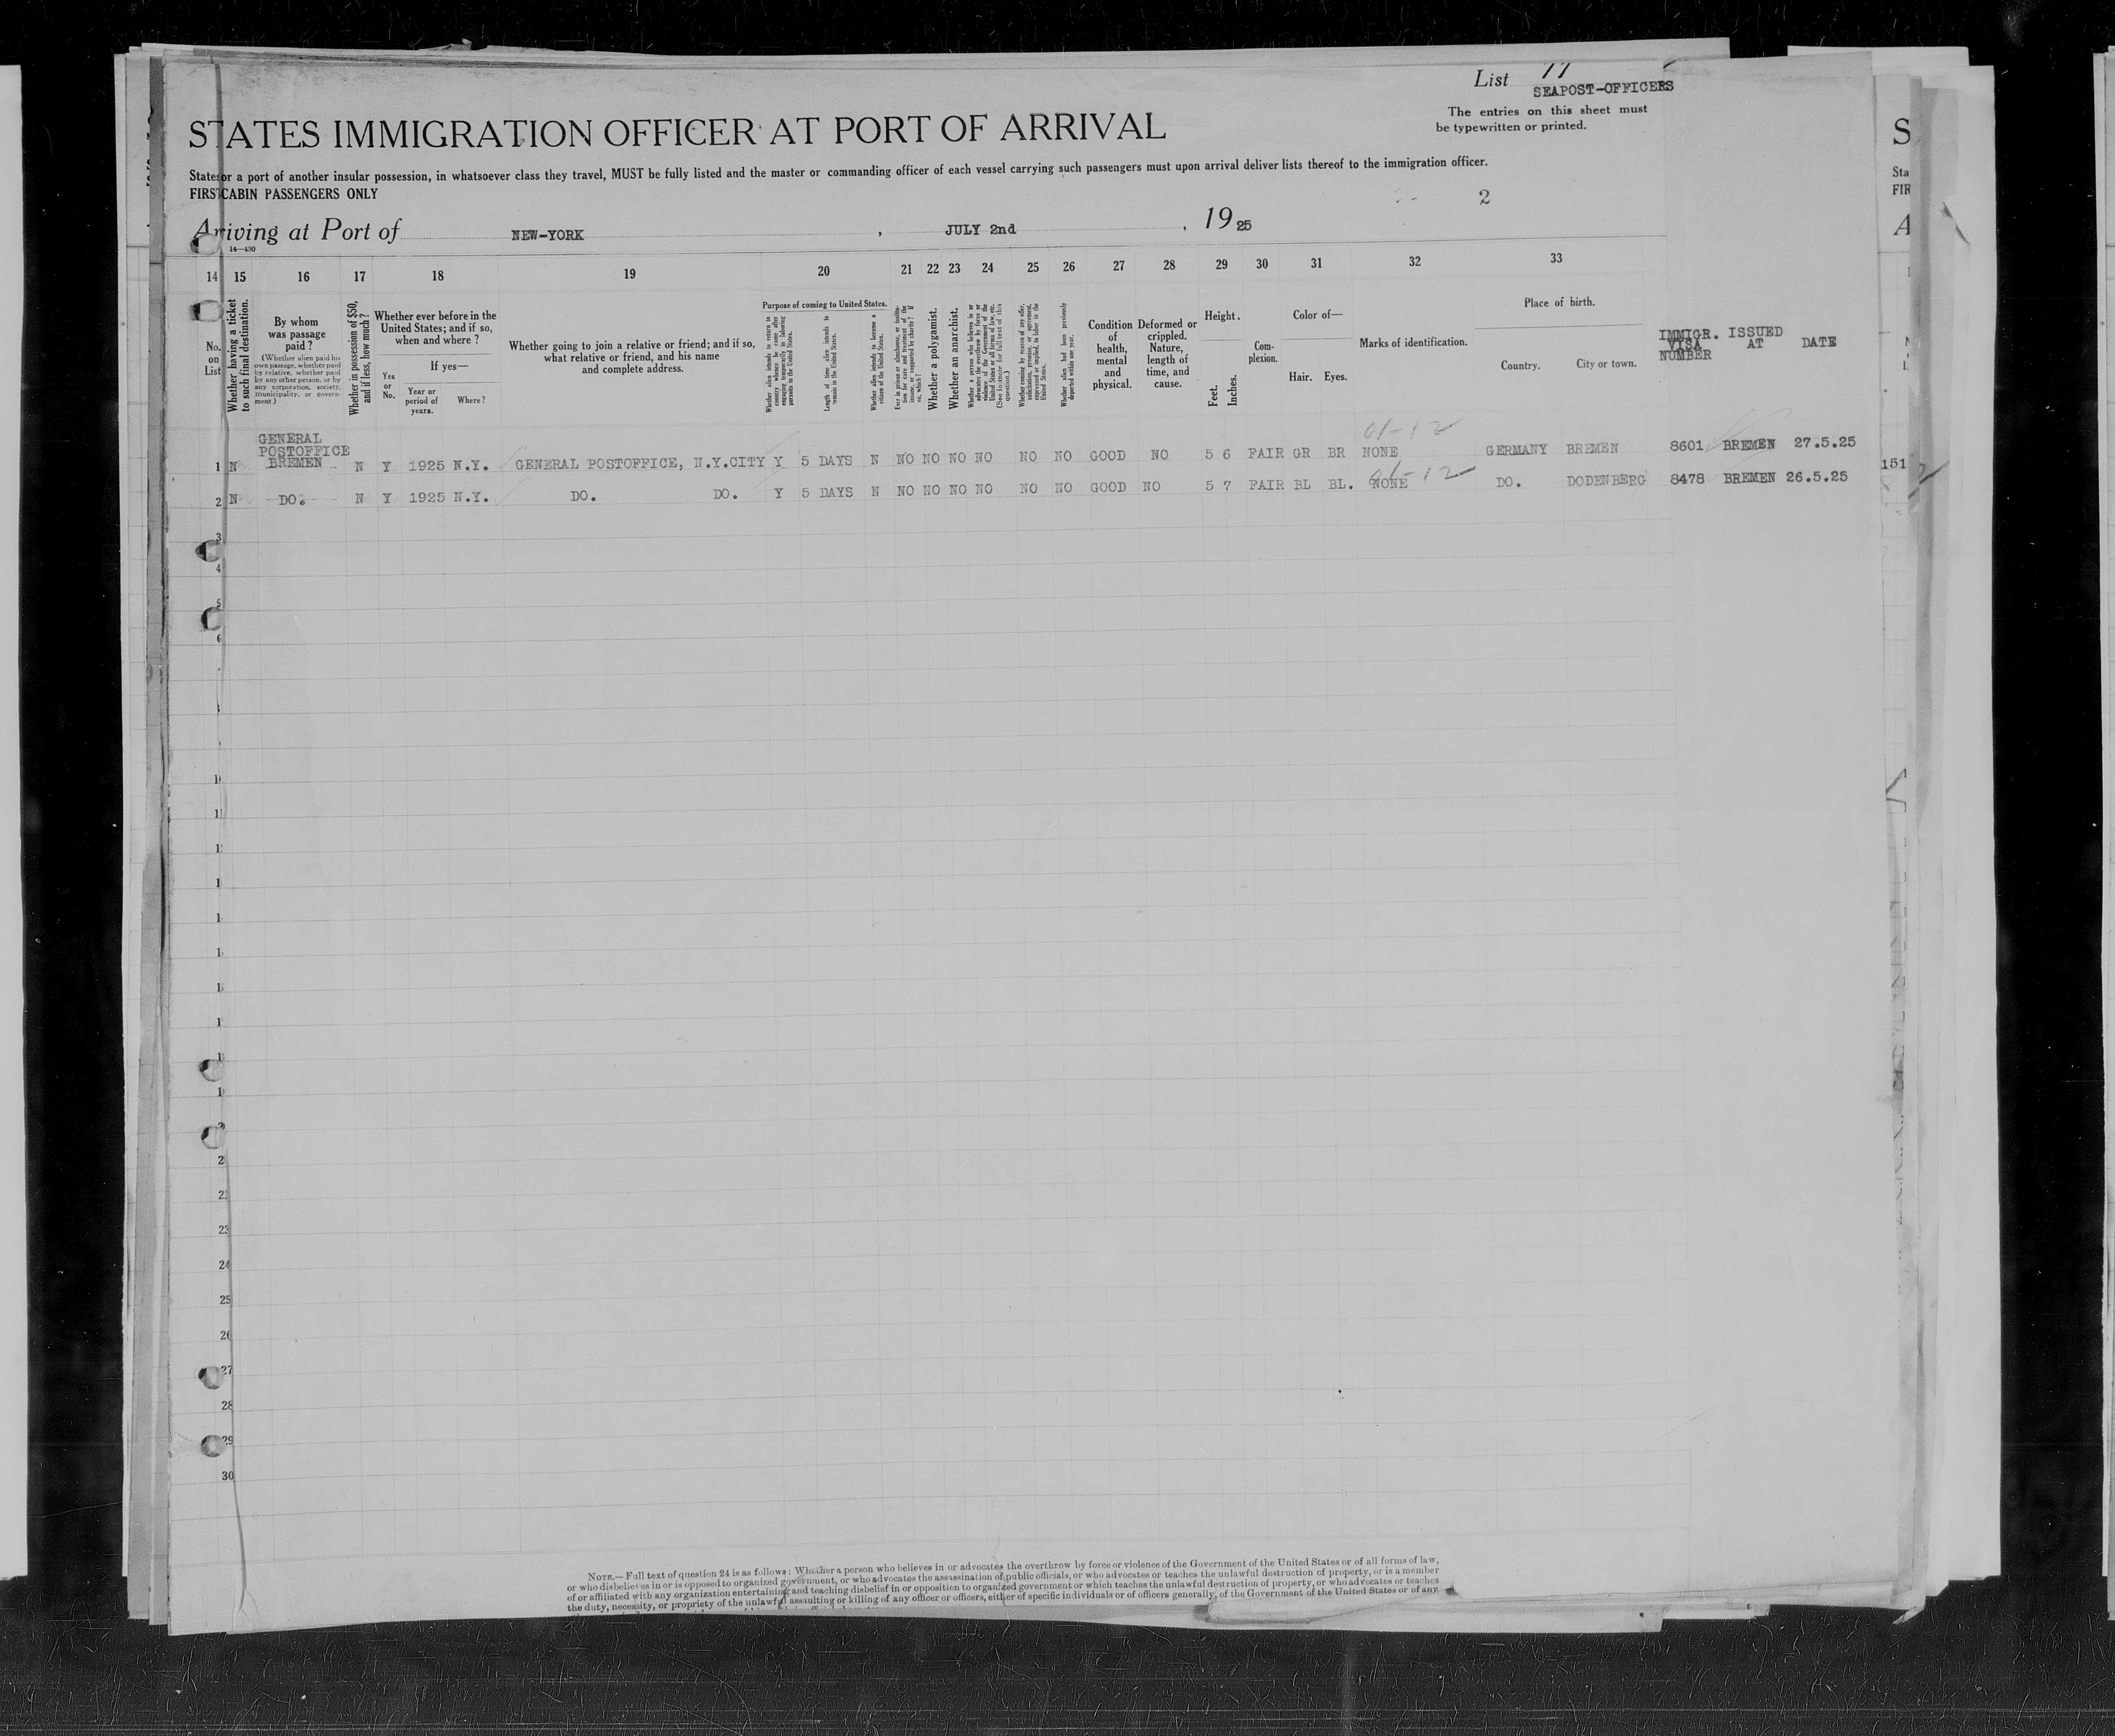 List 11
SEAPOST-OFFICERS
The entries on this sheet must
be typewritten or printed.
STATES IMMIGRATION OFFICER AT PORT OF ARRIVAL
States or a port of another insular possession, in whatsoever class they travel, MUST be fully listed and the master or commanding officer of each vessel carrying such passengers must upon arrival deliver lists thereof to the immigration officer.
FIRST CABIN PASSENGERS ONLY
2
Arriving at Port of NEW-YORK , JULY 2nd , 19 25
14—430
14 15 16 17 18 19 20 21 22 23 24 25 26 27 28 29 30 31 32 33
No. on List
Whether having a ticket to such final destination.
By whom was passage paid?
(Whether alien paid his own passage, whether paid by relative, whether paid by any other person, or by any corporation, society, municipality, or government.)
Whether in possession of $50, and if less, how much?
Whether ever before in the United States; and if so, when and where?
Yes or No.
If yes—
Year or period of years.
Where?
Whether going to join a relative or friend; and if so, what relative or friend, and his name and complete address.
Purpose of coming to United States.
Whether alien intends to return to country whence he came after engaging temporarily in laboring pursuits in the United States.
Length of time alien intends to remain in the United States.
Whether alien intends to become a citizen of the United States.
Ever in prison or almshouse, or institution for care and treatment of the insane, or supported by charity? If so, which?
Whether a polygamist.
Whether an anarchist.
Whether a person who believes in or advocates the overthrow by force or violence of the Government of the United States or all forms of law, etc. (See footnote for full text of this question.)
Whether coming by reason of any offer, solicitation, promise, or agreement, expressed or implied, to labor in the United States.
Whether alien had been previously deported within one year.
Condition of health, mental and physical.
Deformed or crippled. Nature, length of time, and cause.
Height.
Feet. Inches.
Complexion.
Color of—
Hair. Eyes.
Marks of identification.
Place of birth.
Country. City or town.
IMMIGR. VISA NUMBER ISSUED AT DATE
01-12
1 N GENERAL POSTOFFICE BREMEN N Y 1925 N.Y. GENERAL POSTOFFICE, N.Y.CITY Y 5 DAYS N NO NO NO NO NO NO GOOD NO 5 6 FAIR GR BR NONE GERMANY BREMEN 8601 BREMEN 27.5.25
01-12
2 N DO. N Y 1925 N.Y. DO. DO. Y 5 DAYS N NO NO NO NO NO NO GOOD NO 5 7 FAIR BL BL. NONE DO. DODENBERG 8478 BREMEN 26.5.25
151
3
4
5
6
23
24
25
26
27
28
29
30
NOTE.—Full text of question 24 is as follows: Whether a person who believes in or advocates the overthrow by force or violence of the Government of the United States or of all forms of law,
or who disbelieves in or is opposed to organized government, or who advocates the assassination of public officials, or who advocates or teaches the unlawful destruction of property, or is a member
of or affiliated with any organization entertaining and teaching disbelief in or opposition to organized government or which teaches the unlawful destruction of property, or who advocates or teaches
the duty, necessity, or propriety of the unlawful assaulting or killing of any officer or officers, either of specific individuals or of officers generally, of the Government of the United States or of any
S
Sta
FIR
A